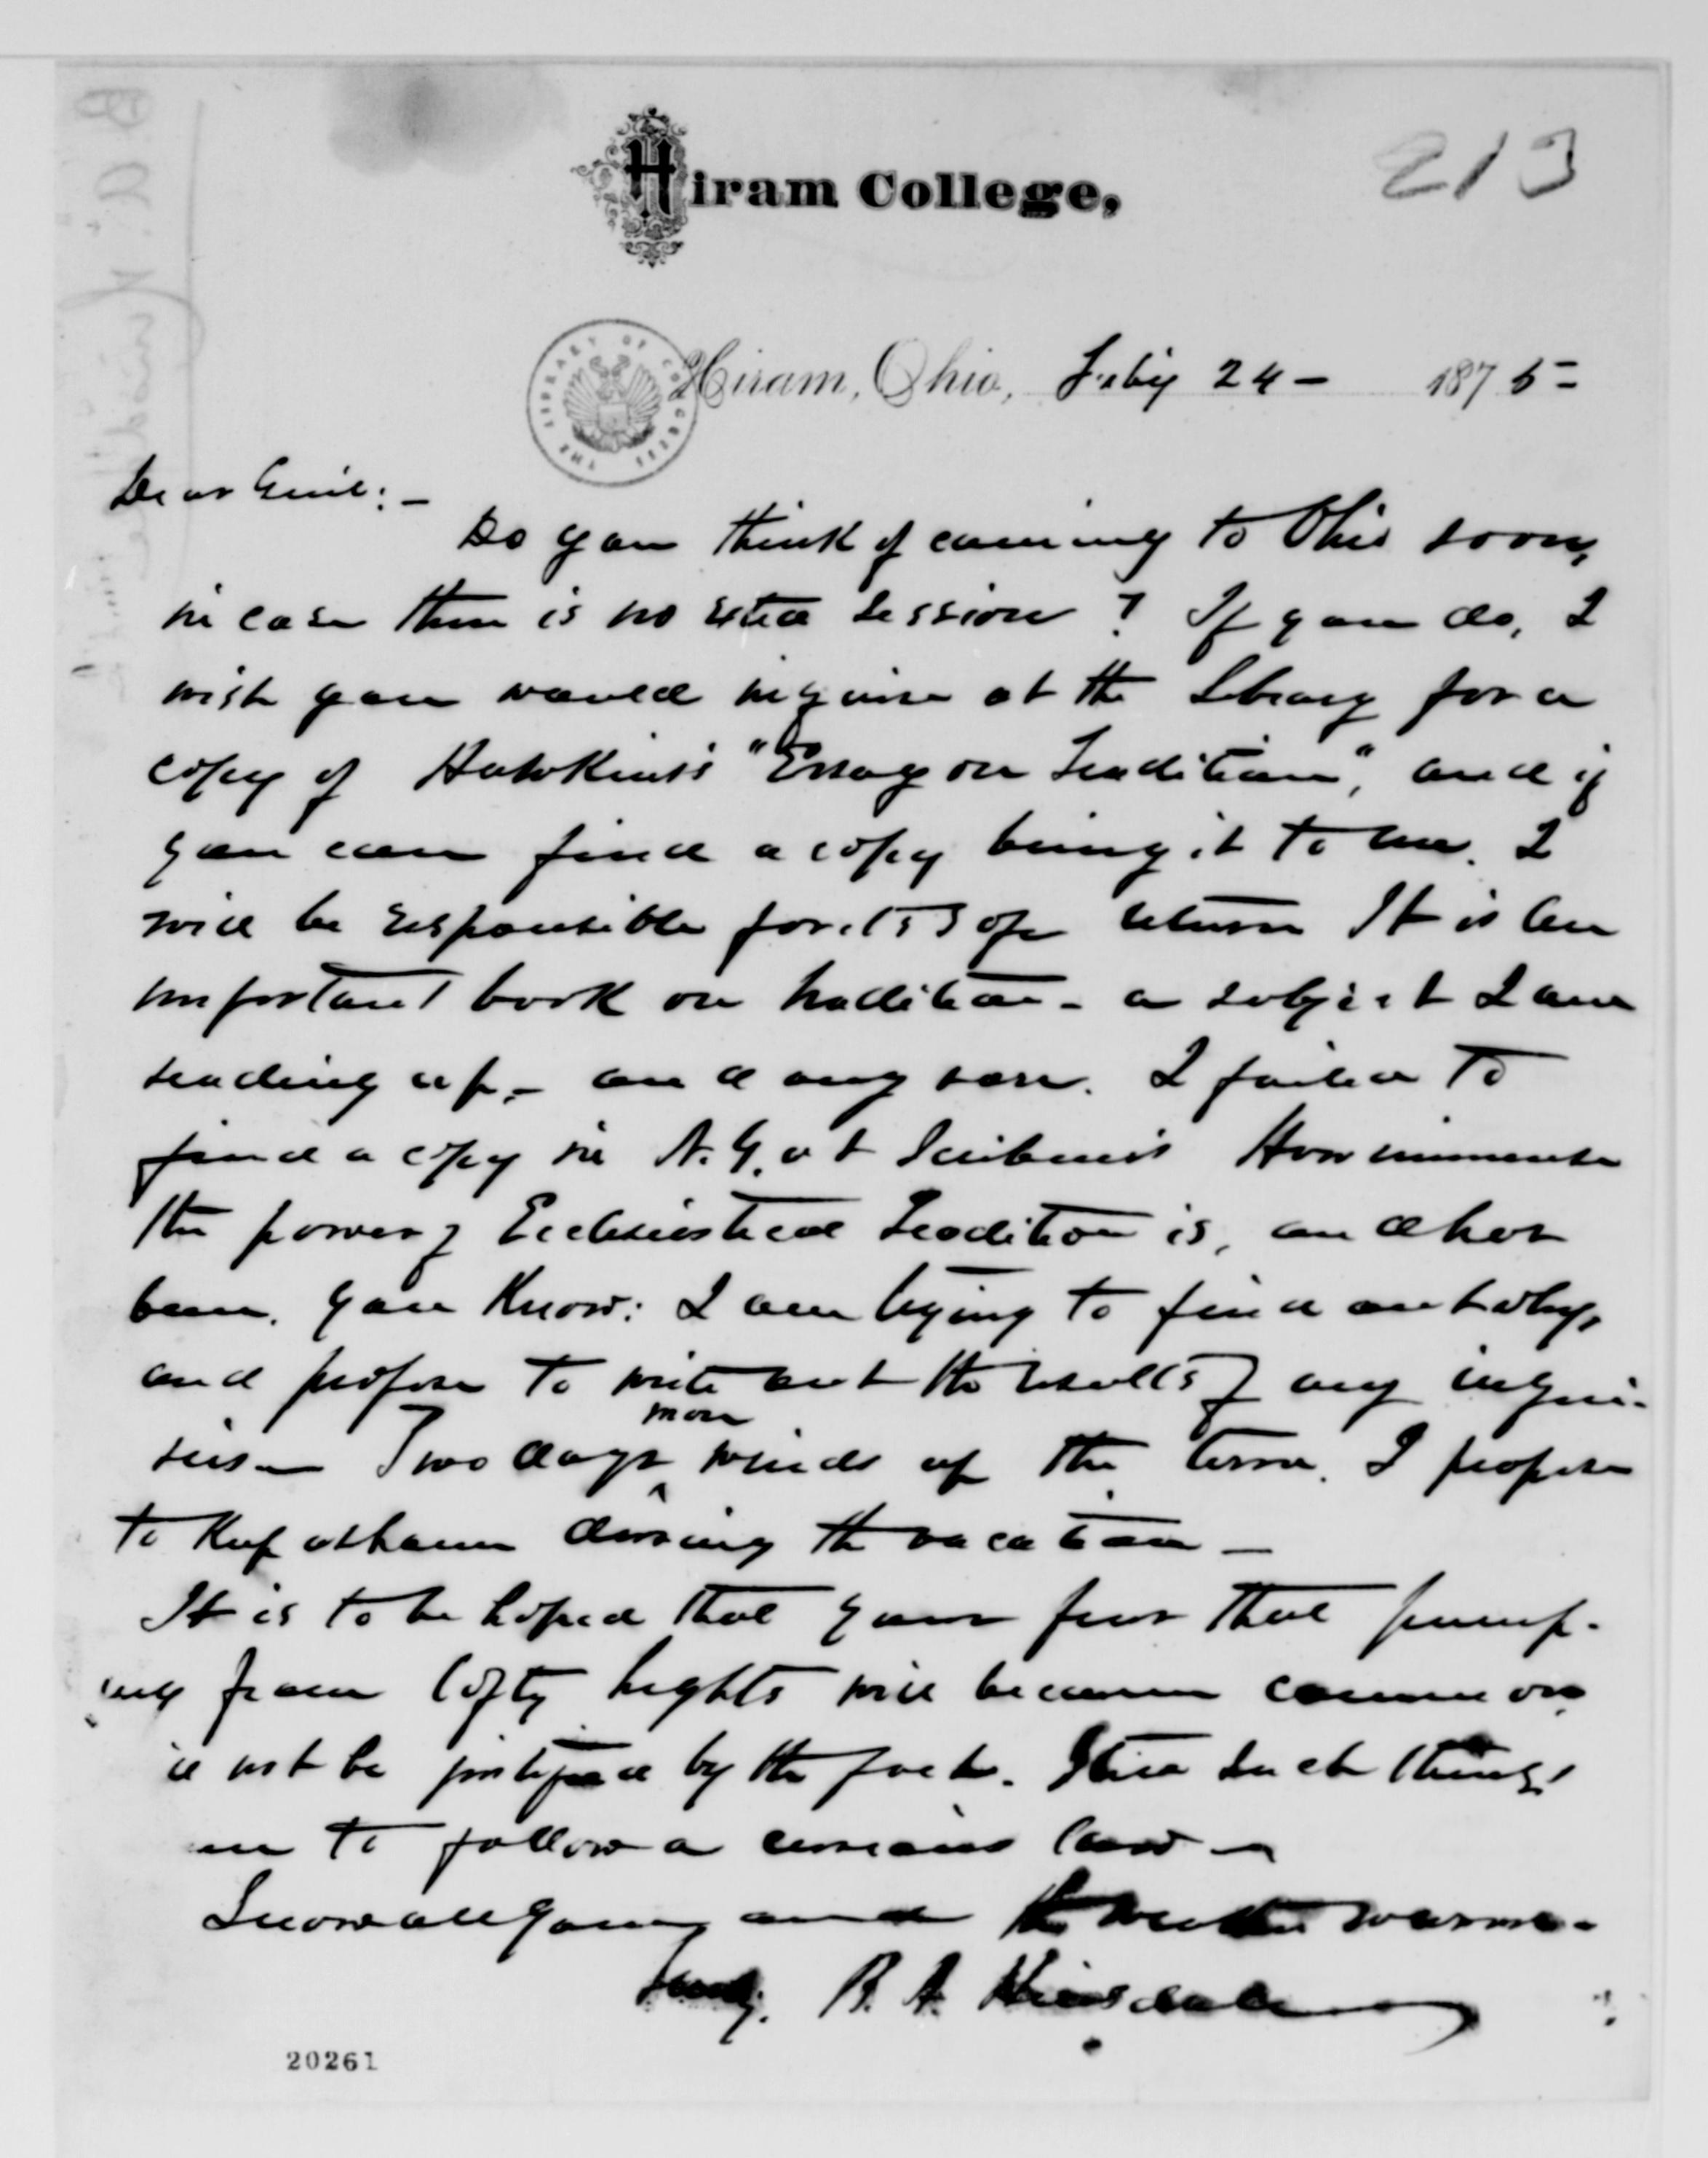 213
Hiram College,
Hiram, Ohio, Feby 24 - 1875 -
THE LIBRARY OF CONGRESS
Dear Genl: -
Do you think of coming to Ohio soon,
in case there is no extra session? If you do, I
wish you would inquire at the Library for a
copy of Hawkins's "Essay on Tradition", and if
you can find a copy bring it to me. I
will be responsible for its safe return It is an
important book on tradition - a subject I am
reading up, - and any rare. I failed to
find a copy in N.Y. at Scribner's How immense
the power of Ecclesiastical Tradition is, and has
been, you know: I am trying to find out why,
and propose to write out the results of my inqui-
ries - Two days more winds up the term. I propose
to keep at home during the vacation -
It is to be hoped that your fear that jump-
ing from lofty hights will become common,
not be justified by the facts. Still such things
to follow a curious law -
Snow all going and the weather warmer -
Truly, B. A. Hinsdale
20261